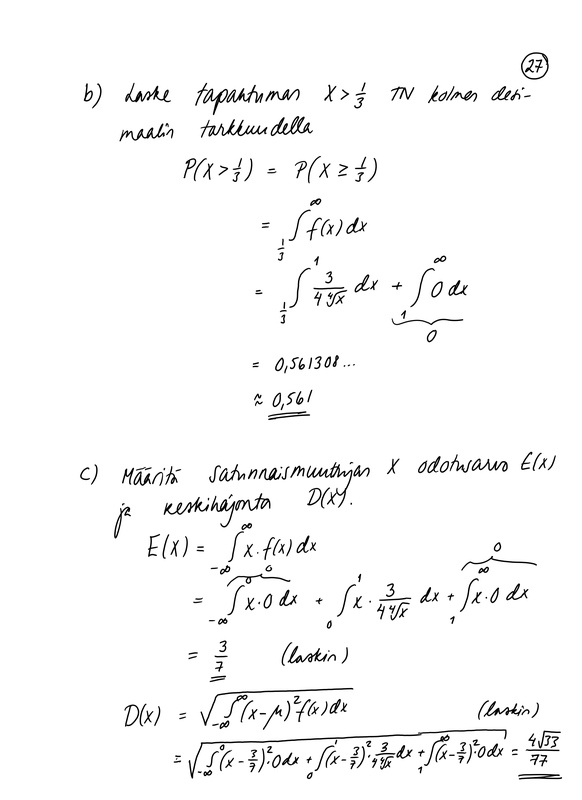 27
b) Laske tapahtuman X > 1/3 TN kolmen desi-
maalin tarkkuudella
P(X > 1/3) = P(X ≥ 1/3)
= ∫_{1/3}^{∞} f(x) dx
= ∫_{1/3}^{1} 3/(4 ∜x) dx + ∫_{1}^{∞} 0 dx
0
= 0,561308...
≈ 0,561
c) Määritä satunnaismuuttujan X odotusarvo E(X)
ja keskihajonta D(X).
E(X) = ∫_{-∞}^{∞} x · f(x) dx
0 0
= ∫_{-∞}^{0} x · 0 dx + ∫_{0}^{1} x · 3/(4 ∜x) dx + ∫_{1}^{∞} x · 0 dx
= 3/7 (laskin)
D(X) = √(∫_{-∞}^{∞} (x-μ)² f(x) dx) (laskin)
= √(∫_{-∞}^{0} (x - 3/7)² · 0 dx + ∫_{0}^{1} (x - 3/7)² · 3/(4 ∜x) dx + ∫_{1}^{∞} (x - 3/7)² · 0 dx) = 4√33/77